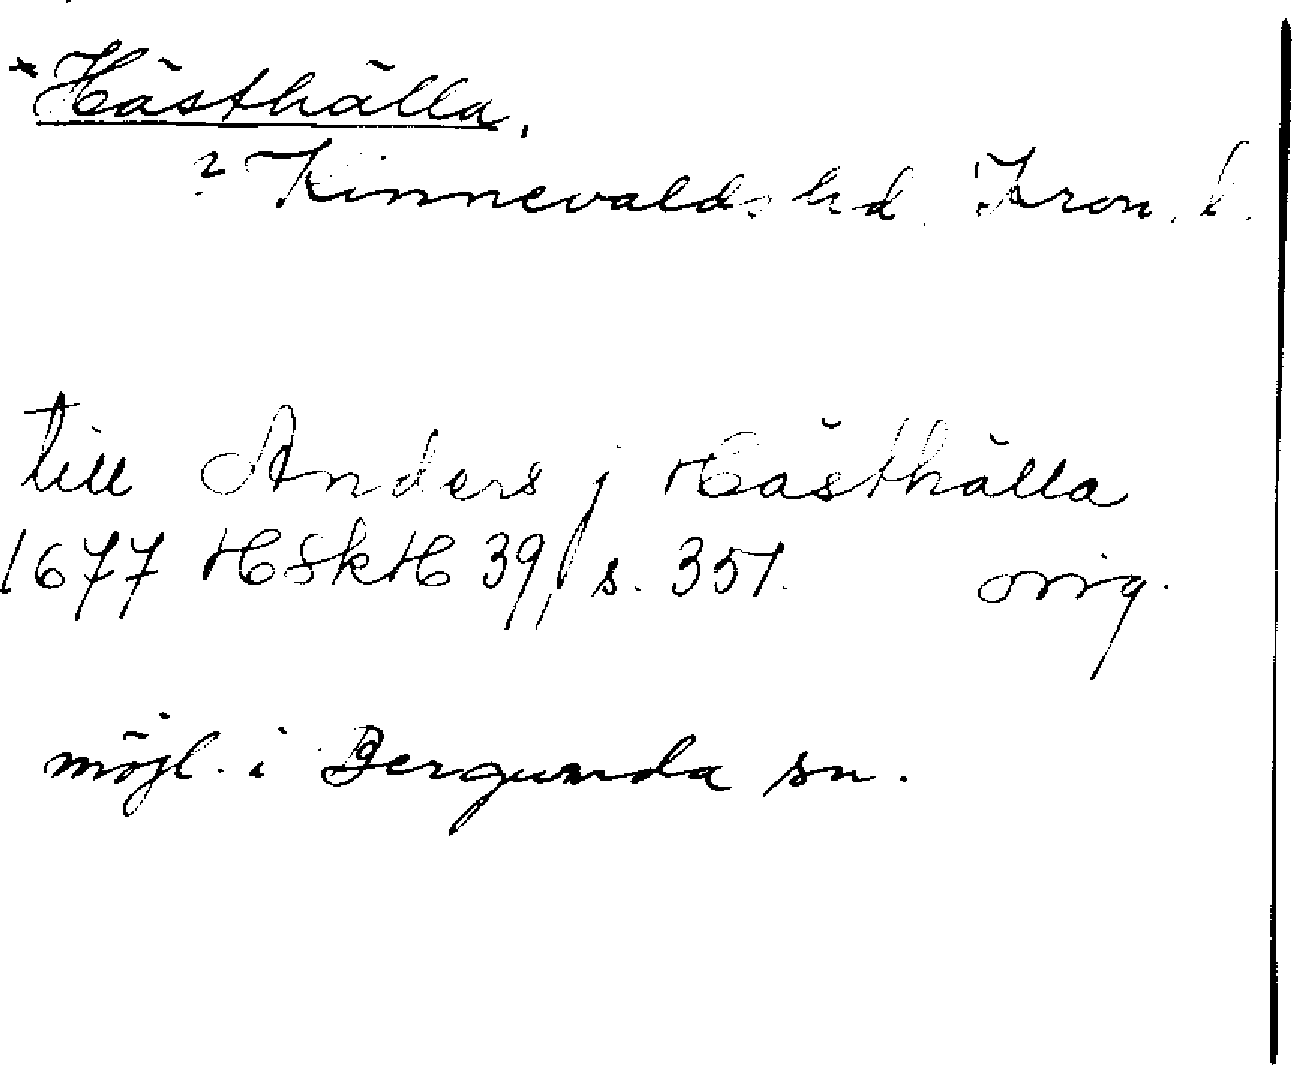 *Hästhälla.
? Kinnevalds hd. Kron. l.
till Anders j Hästhälla
1677 HSkH 39, s. 351. orig.
möjl. i Bergunda sn.